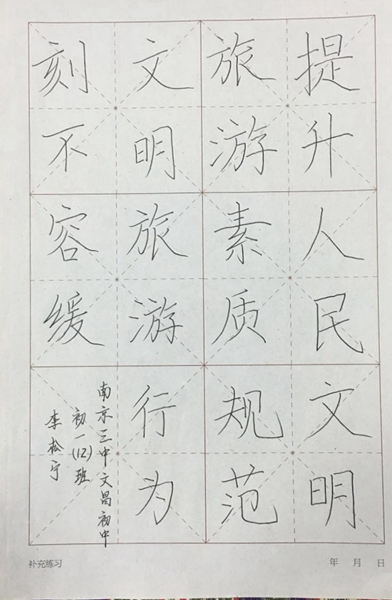 提升人民文明
旅游素质规范
文明旅游行为
刻不容缓
南京三中文昌初中
初一(12)班
李松宁
补充练习
年 月 日